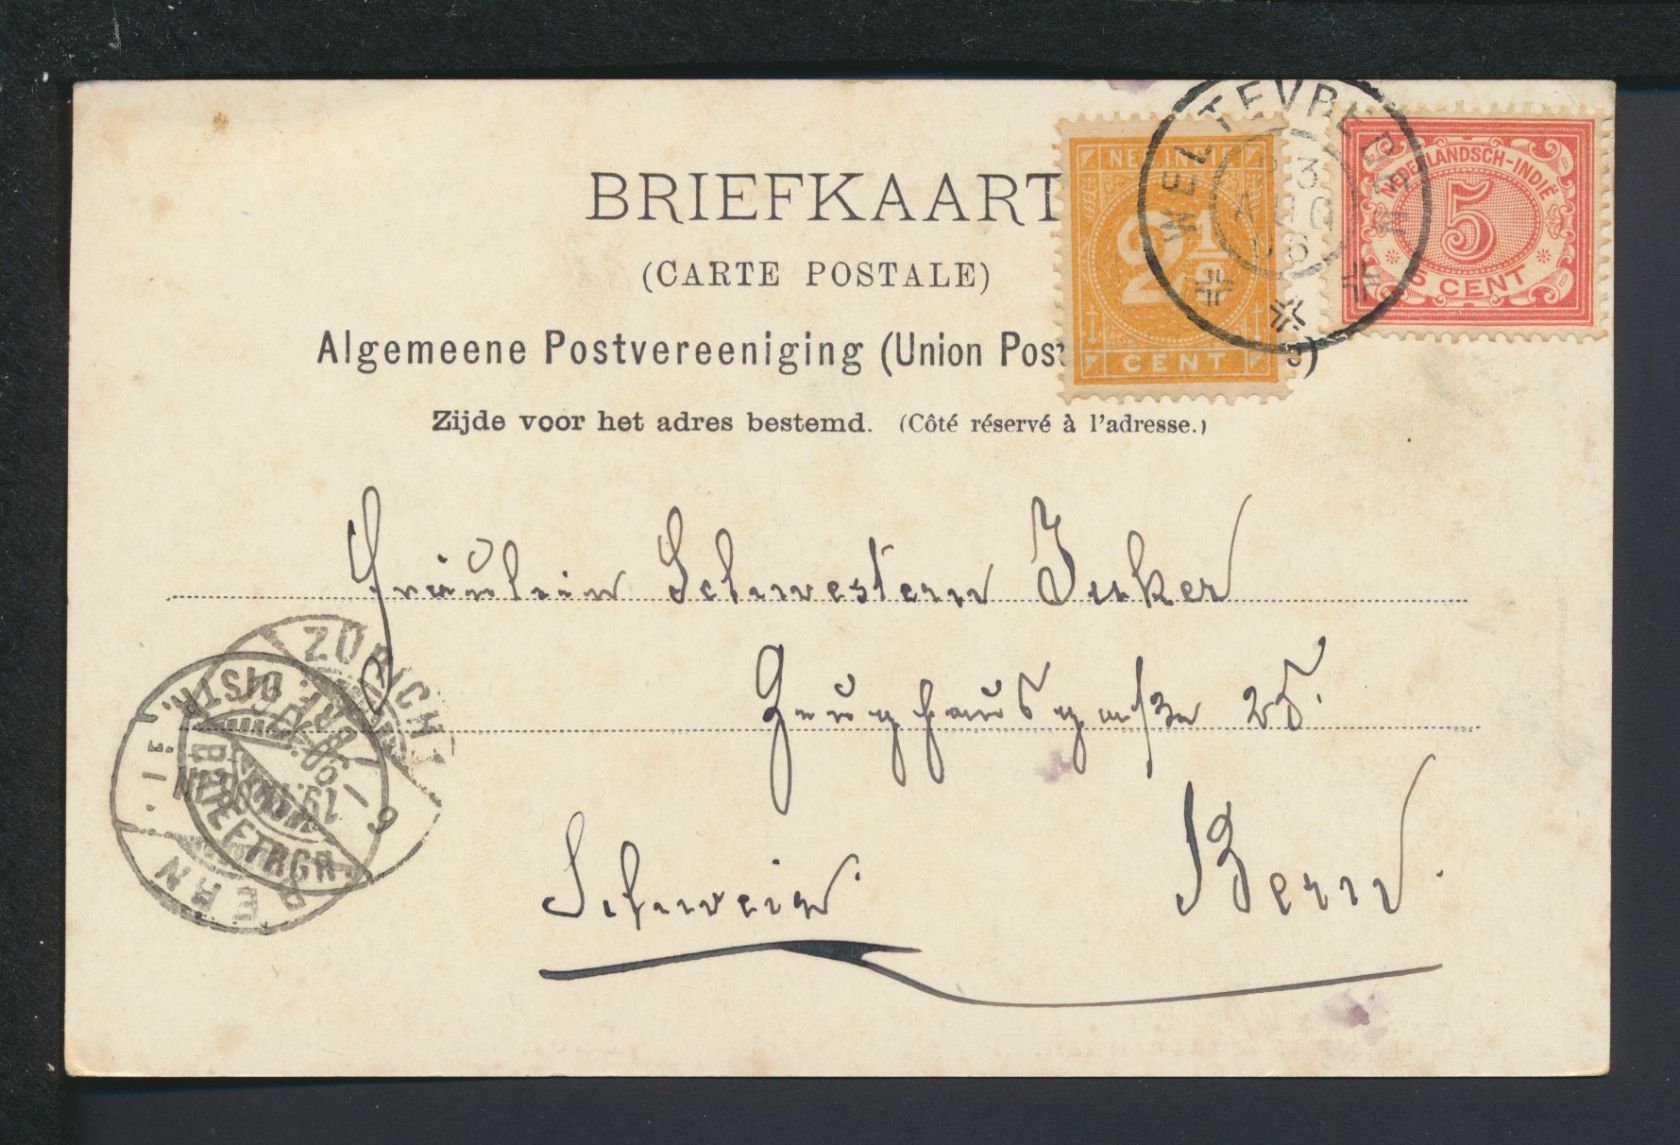 BRIEFKAART
(CARTE POSTALE)
Algemeene Postvereeniging (Union Pos
Zijde voor het adres bestemd. (Côté réservé à l'adresse.)
NED. INDIE
2 1/2
CENT
NEDERLANDSCH-INDIË
5
5 CENT
WELTEVREDEN
Fräulein Schwestern Inker
Zeughausgasse 25.
Schweiz. Bern.
ZÜRICH
BRF. DISTR.
BERN
BRIEFTRGR.